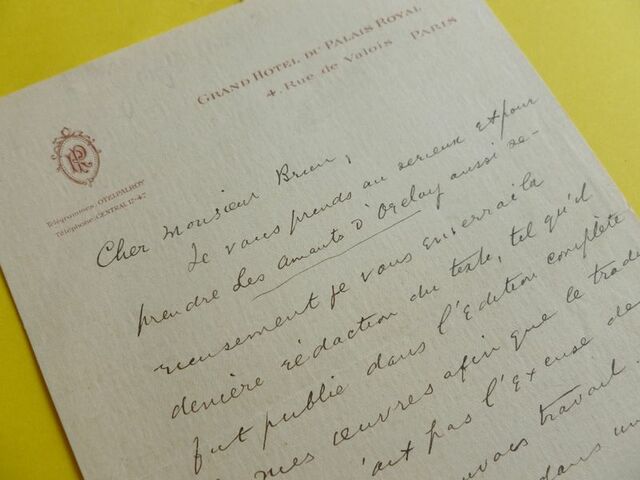 GRAND HOTEL DU PALAIS ROYAL
4, Rue de Valois PARIS
PR
Télégrammes, OTELPALROY
Téléphone: CENTRAL 17-47
Cher Monsieur Brieu,
Je vous prends au serieux et pour
prendre Les amants d'
aussi se-
rieusement je vous enverrai la
dernière rédaction du texte, tel qu'il
fut publié dans l'Edition complète
mes œuvres afin que le
'ait pas l'Excuse de
travail.
dans un